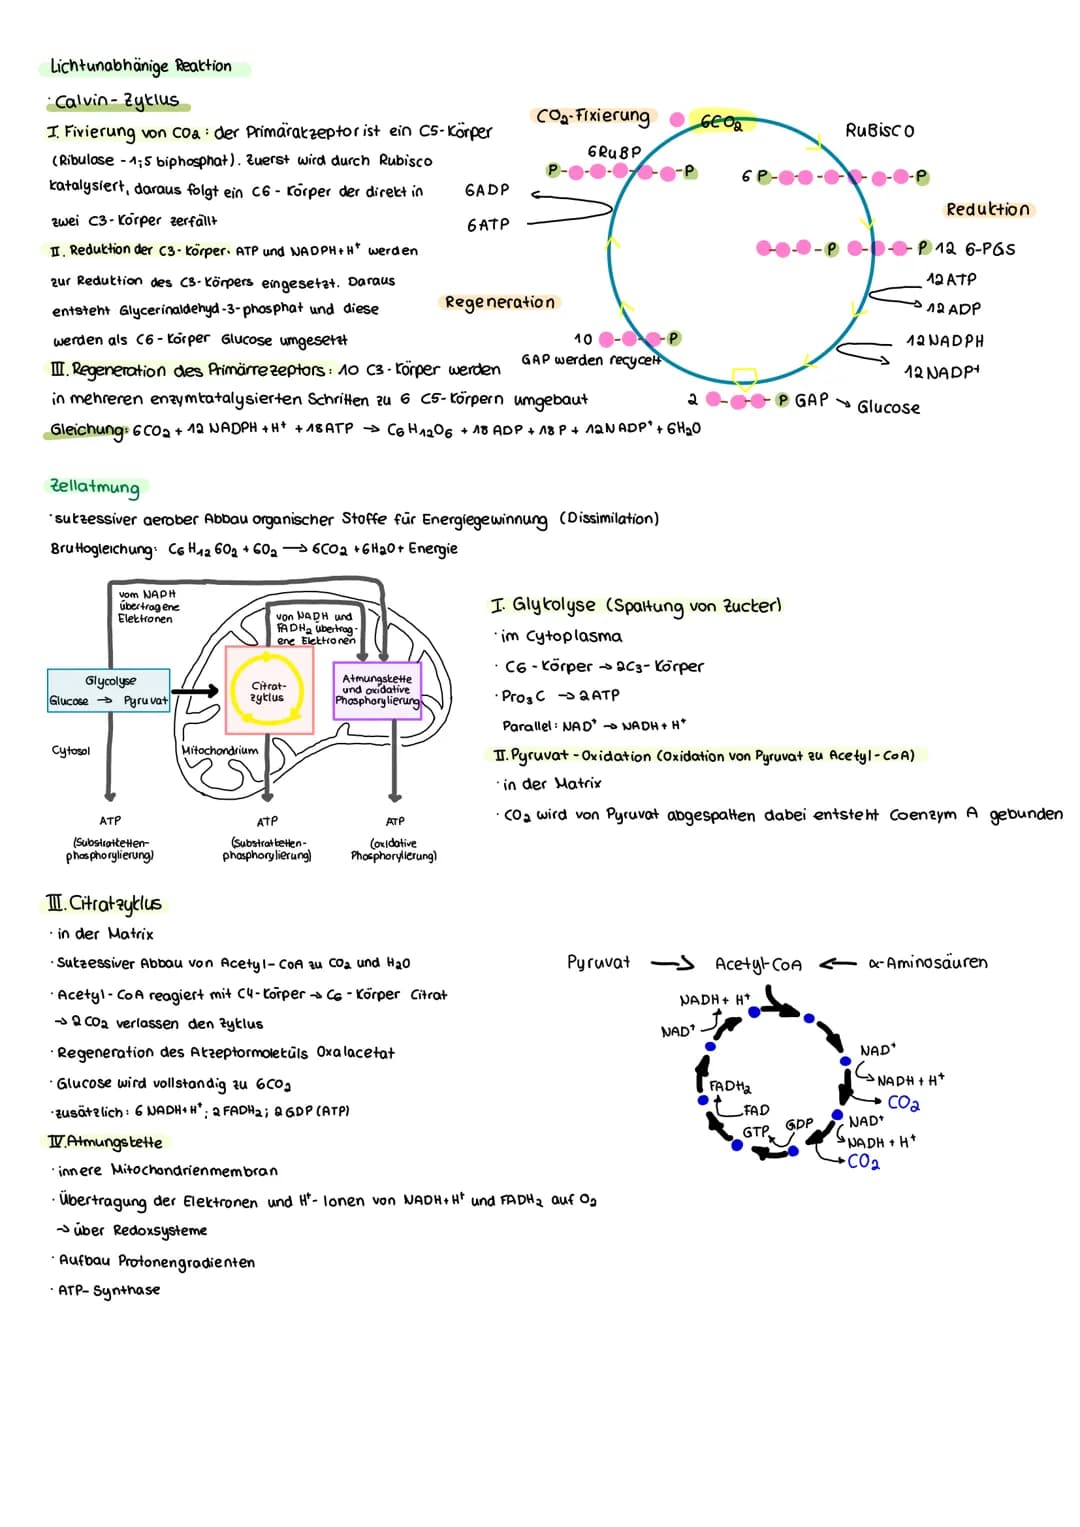 Lichtunabhänige Reaktion
· Calvin-Zyklus
I. Fivierung von CO2: der Primärakzeptor ist ein C5-Körper
(Ribulose -1,5 biphosphat). Zuerst wird durch Rubisco
katalysiert, daraus folgt ein C6-Körper der direkt in
zwei C3-Körper zerfällt
II. Reduktion der C3-Körper. ATP und NADPH+H⁺ werden
zur Reduktion des C3-Körpers eingesetzt. Daraus
entsteht Glycerinaldehyd-3-phosphat und diese
werden als C6-Körper Glucose umgesetzt
III. Regeneration des Primärrezeptors: 10 C3-Körper werden
in mehreren enzymkatalysierten Schritten zu 6 C5-Körpern umgebaut
Gleichung: 6CO2 + 12 NADPH + H⁺ + 18ATP → C6H12O6 + 18 ADP + 18 P + 12NADP⁺ + 6H2O
CO2-Fixierung
6CO2
RuBisCO
6RuBP
P P
6 P P
6ADP
6ATP
Reduktion
P P 12 6-PGS
12ATP
12ADP
Regeneration
12NADPH
12NADP⁺
10 P
GAP werden recycelt
2 P GAP → Glucose
Zellatmung
· sukzessiver aerober Abbau organischer Stoffe für Energiegewinnung (Dissimilation)
Bruttogleichung: C6H12 6O2 + 6O2 → 6CO2 + 6H2O + Energie
vom NADH
übertragene
Elektronen
von NADH und
FADH2 übertrag-
ene Elektronen
Glycolyse
Glucose → Pyruvat
Citrat-
zyklus
Atmungskette
und oxidative
Phosphorylierung
Cytosol
Mitochondrium
ATP
(Substratketten-
phosphorylierung)
ATP
(Substratketten-
phosphorylierung)
ATP
(oxidative
Phosphorylierung)
I. Glykolyse (Spaltung von Zucker)
· im Cytoplasma
· C6-Körper → 2C3-Körper
· Pro3C → 2ATP
Parallel: NAD⁺ → NADH + H⁺
II. Pyruvat-Oxidation (Oxidation von Pyruvat zu Acetyl-CoA)
· in der Matrix
· CO2 wird von Pyruvat abgespalten dabei entsteht Coenzym A gebunden
III. Citratzyklus
· in der Matrix
· Sukzessiver Abbau von Acetyl-CoA zu CO2 und H2O
· Acetyl-CoA reagiert mit C4-Körper → C6-Körper Citrat
→ 2 CO2 verlassen den Zyklus
· Regeneration des Akzeptormoleküls Oxalacetat
· Glucose wird vollständig zu 6CO2
· zusätzlich: 6 NADH+H⁺; 2 FADH2; 2 GDP (ATP)
IV. Atmungskette
· innere Mitochondrienmembran
· Übertragung der Elektronen und H⁺-Ionen von NADH+H⁺ und FADH2 auf O2
→ über Redoxsysteme
· Aufbau Protonengradienten
· ATP-Synthase
Pyruvat → Acetyl-CoA ← α-Aminosäuren
NADH + H⁺
NAD⁺
NAD⁺
NADH + H⁺
CO2
FADH2
FAD
GTP GDP
NAD⁺
NADH + H⁺
CO2